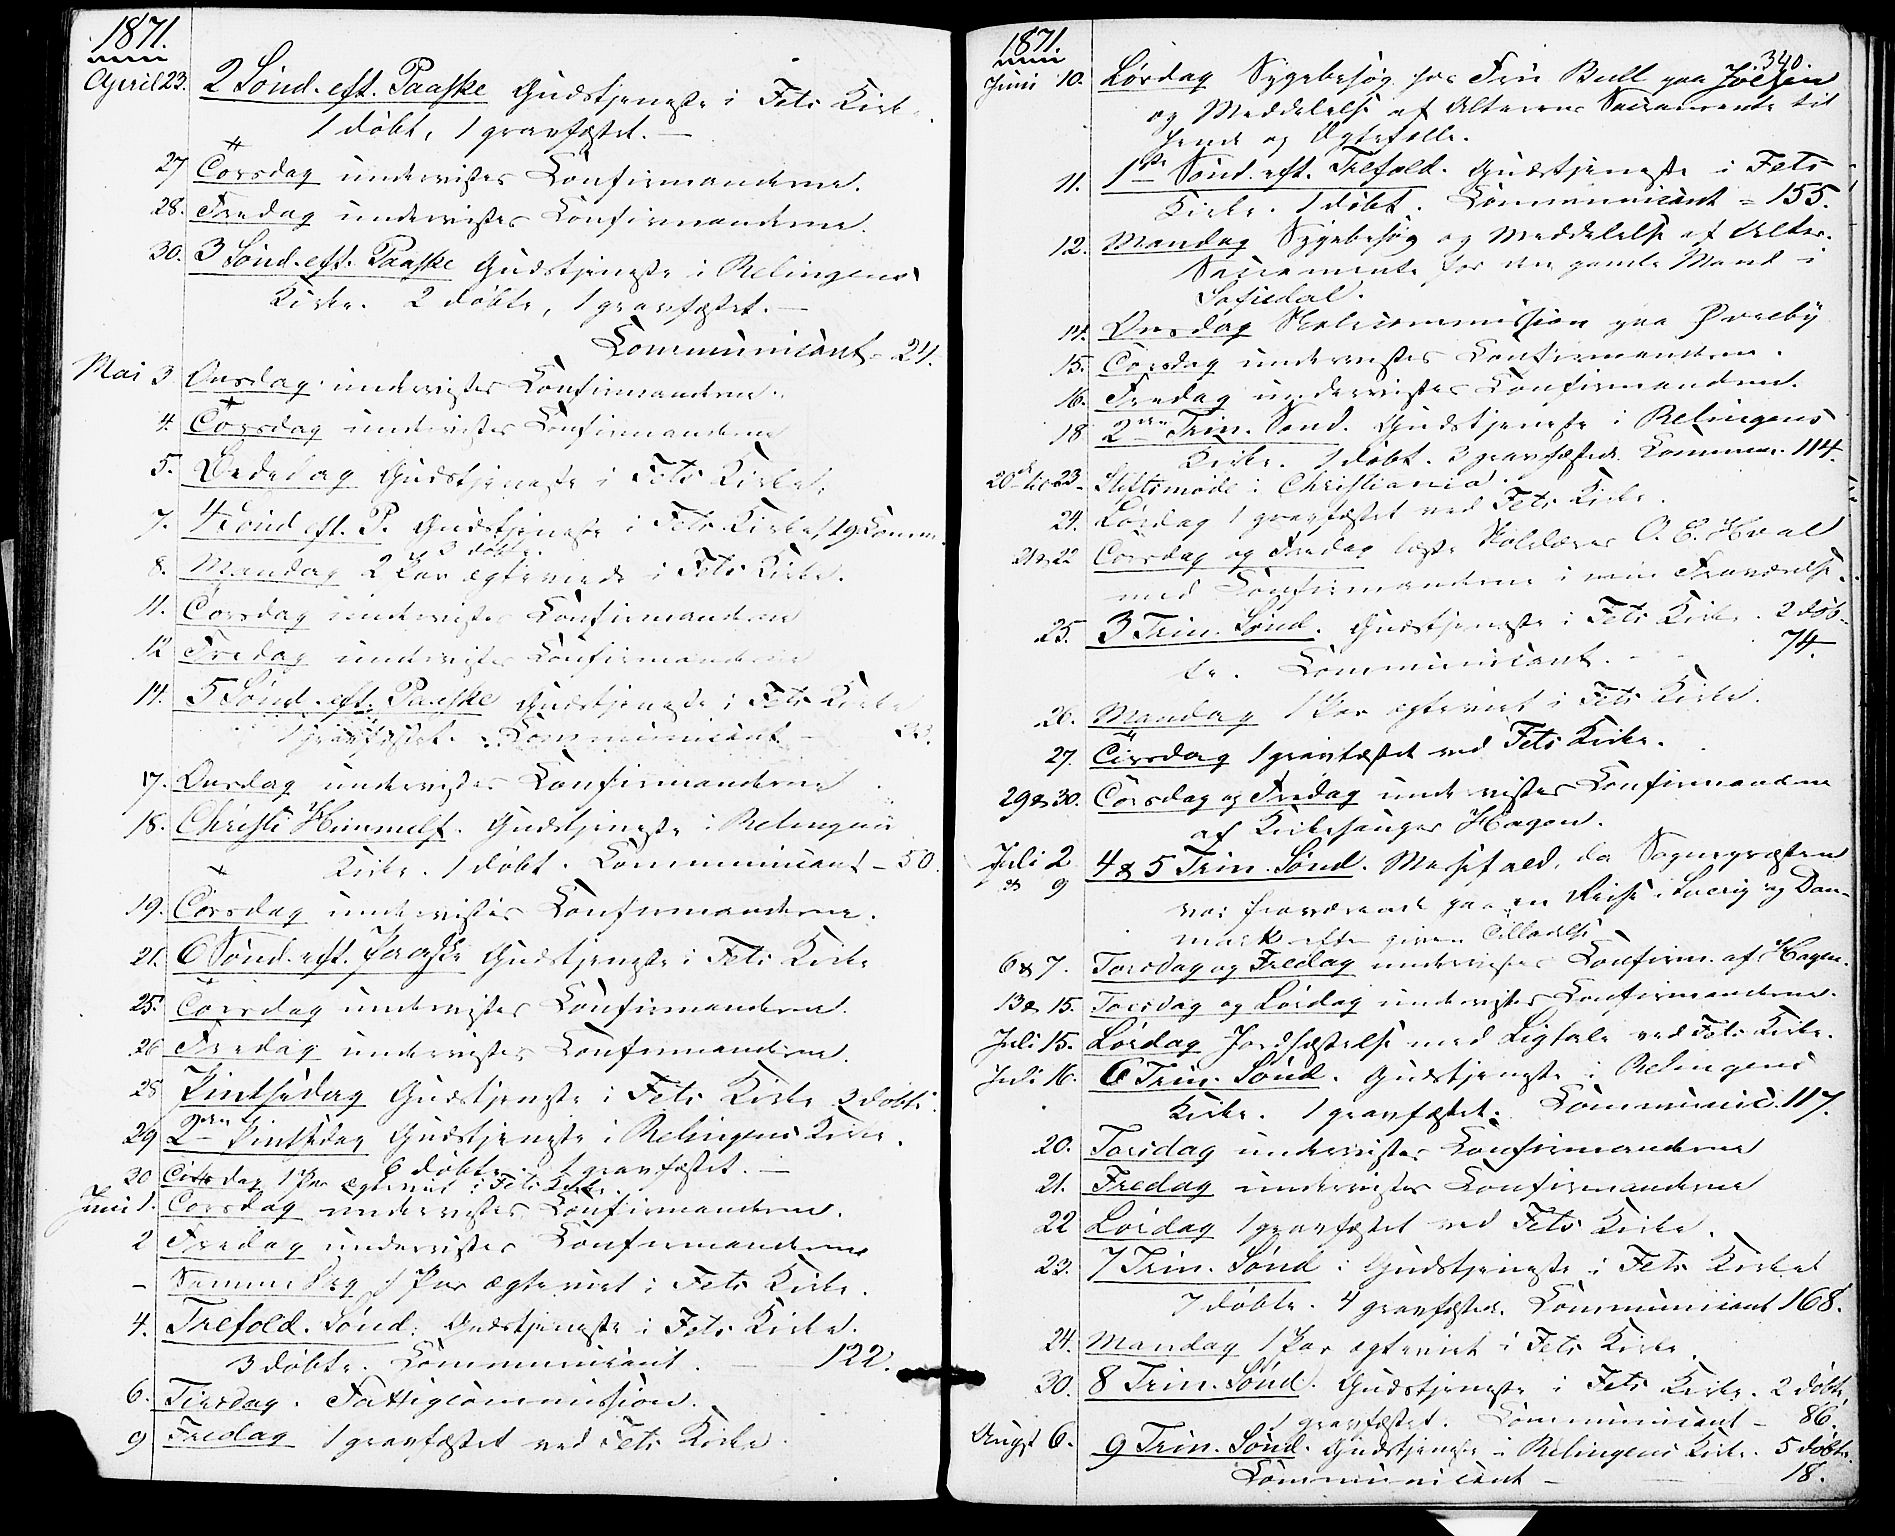 1871.
April 23. 2 Sønd. eft. Paaske Gudstjeneste i Fets Kirke.
1 døbt, 1 gravfæstet. —
27 Torsdag undervistes Confirmanderne.
28. Fredag undervistes Confirmanderne.
30. 3 Sønd. eft. Paaske Gudstjeneste i Relingens
Kirke. 2 døbte, 1 gravfæstet. —
Communicant - 24.
Mai 3 Onsdag undervistes Confirmanderne.
4. Torsdag undervistes Confirmanderne
5. Bededag Gudstjeneste i Fets Kirke.
7. 4 Sønd. eft. P. Gudstjeneste i Fets Kirke, 19 Comm.
3 døbte.
8. Mandag 2 Par ægteviede i Fets Kirke.
11. Torsdag undervistes Confirmanderne
12 Fredag undervistes Confirmanderne
14. 5 Sønd. eft. Paaske Gudstjeneste i Fets Kirke
1 gravfæstet. Communicant - 33.
17. Onsdag undervistes Confirmanderne
18. Christi Himmelf. Gudstjeneste i Relingens
Kirke. 1 døbt. Communicant - 50.
19. Torsdag undervistes Confirmanderne.
21. 6 Sønd. eft. Paaske Gudstjeneste i Fets Kirke
25. Torsdag undervistes Confirmanderne.
26 Fredag undervistes Confirmanderne.
28 Pintsedag Gudstjeneste i Fets Kirke 2 døbte.
29 2den Pintsedag Gudstjeneste i Relingens Kirke.
6 døbte. 1 gravfæstet. —
30 Tirsdag 1 Par ægteviet i Fets Kirke.
Juni 1. Torsdag undervistes Confirmanderne.
2 Fredag undervistes Confirmanderne
- Samme Dag 1 Par ægteviet i Fets Kirke.
4. Trefold. Sønd. Gudstjeneste i Fets Kirke.
3 døbte. Communicant. — 122.
6. Tirsdag. Fattigcommission.
9 Fredag 1 gravfæstet ved Fets Kirke.
1871.
340.
Juni 10. Lørdag Sygebesøg hos Fru Bull paa Jølsen
og Meddelelse af Alterens Sacramente til
hende og Ægtefælle.
11. 1ste Sønd. eft. Trefold. Gudstjeneste i Fets
Kirke. 1 døbt. Communicant = 155.
12. Mandag Sygebesøg og Meddelelse af Alter.
Sacramente for den gamle Mand i
Sofiedal.
14. Onsdag Skolecommission paa Øvreby
15. Torsdag undervistes Confirmanderne.
16. Fredag undervistes Confirmanderne.
18 2den Trin. Sønd. Gudstjeneste i Relingens
Kirke. 1 døbt. 3 gravfæstede. Commun. 114.
20de til 23. Stiftsmøde i Christiania.
24. Lørdag 1 gravfæstet ved Fets Kirke.
21 & 22 Torsdag og Fredag læste Skolelærer O. E. Hval
med Confirmanderne i min Fraværelse.
25. 3 Trin. Sønd. Gudstjeneste i Fets Kirke. 2 døb-
te. Communicant. — 74.
26. Mandag 1 Par ægteviet i Fets Kirke.
27. Tirsdag 1 gravfæstet ved Fets Kirke.
29 & 30. Torsdag og Fredag undervistes Confirmanderne
af Kirkesanger Hagen.
Juli 2 & 9 4 & 5 Trin. Sønd. Messefald, da Sognepræsten
var fraværende paa en Reise i Sverig og Dan-
mark efter given Tilladelse
6 & 7. Torsdag og Fredag undervistes Confirm. af Hagen.
13 & 15. Torsdag og Lørdag undervistes Confirmanderne.
Juli 15. Lørdag Jordfæstelse med Ligtale ved Fets Kirke.
Juli 16. 6 Trin. Sønd. Gudstjeneste i Relingens
Kirke. 1 gravfæstet. Communic. 117.
20. Torsdag undervistes Confirmanderne
21. Fredag undervistes Confirmanderne
22 Lørdag 1 gravfæstet ved Fets Kirke.
23. 7 Trin. Sønd. Gudstjeneste i Fets Kirke
7 døbte. 4 gravfæstede. Communicant 168.
24. Mandag 1 Par ægteviet i Fets Kirke.
30. 8 Trin. Sønd. Gudstjeneste i Fets Kirke. 2 døbte
1 gravfæstet. Communicant - 86.
August 6. 9 Trin. Sønd. Gudstjeneste i Relingens Kirke. 5 døbte.
Communicant — 18.